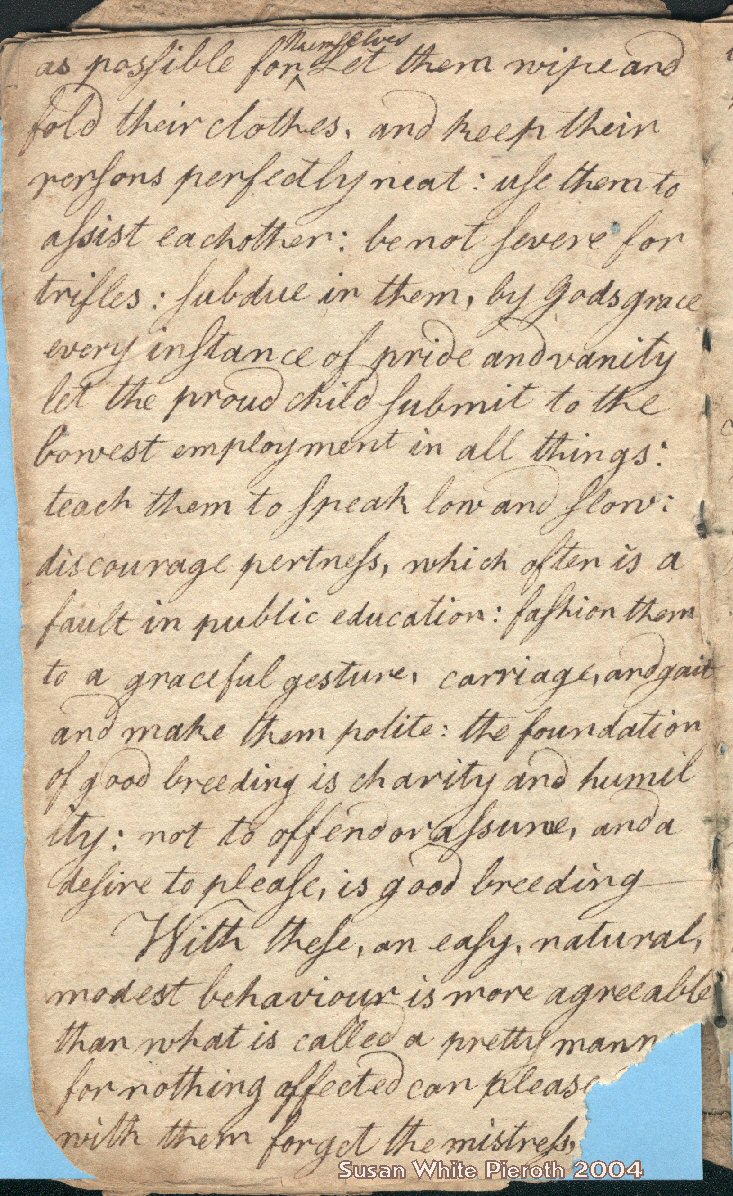 themselves
as poſsible for Let them wipe and
fold their clothes, and keep their
perſons perfectly neat: uſe them to
aſsist eachother: be not ſevere for
trifles: ſubdue in them, by Gods grace
every inſtance of pride and vanity
let the proud child ſubmit to the
lowest employment in all things:
teach them to ſpeak low and ſlow:
discourage pertneſs, which often is a
fault in public education: faſhion them
to a graceful gesture, carriage, and gait
and make them polite: the foundation
of good breeding is charity and humil
ity: not to offend or aſsume, and a
deſire to pleaſe, is good breeding
With theſe, an eaſy, natural,
modest behaviour is more agreeable
than what is called a pretty mann
for nothing affected can pleaſe
with them forget the mistreſs,
Susan White Pieroth 2004